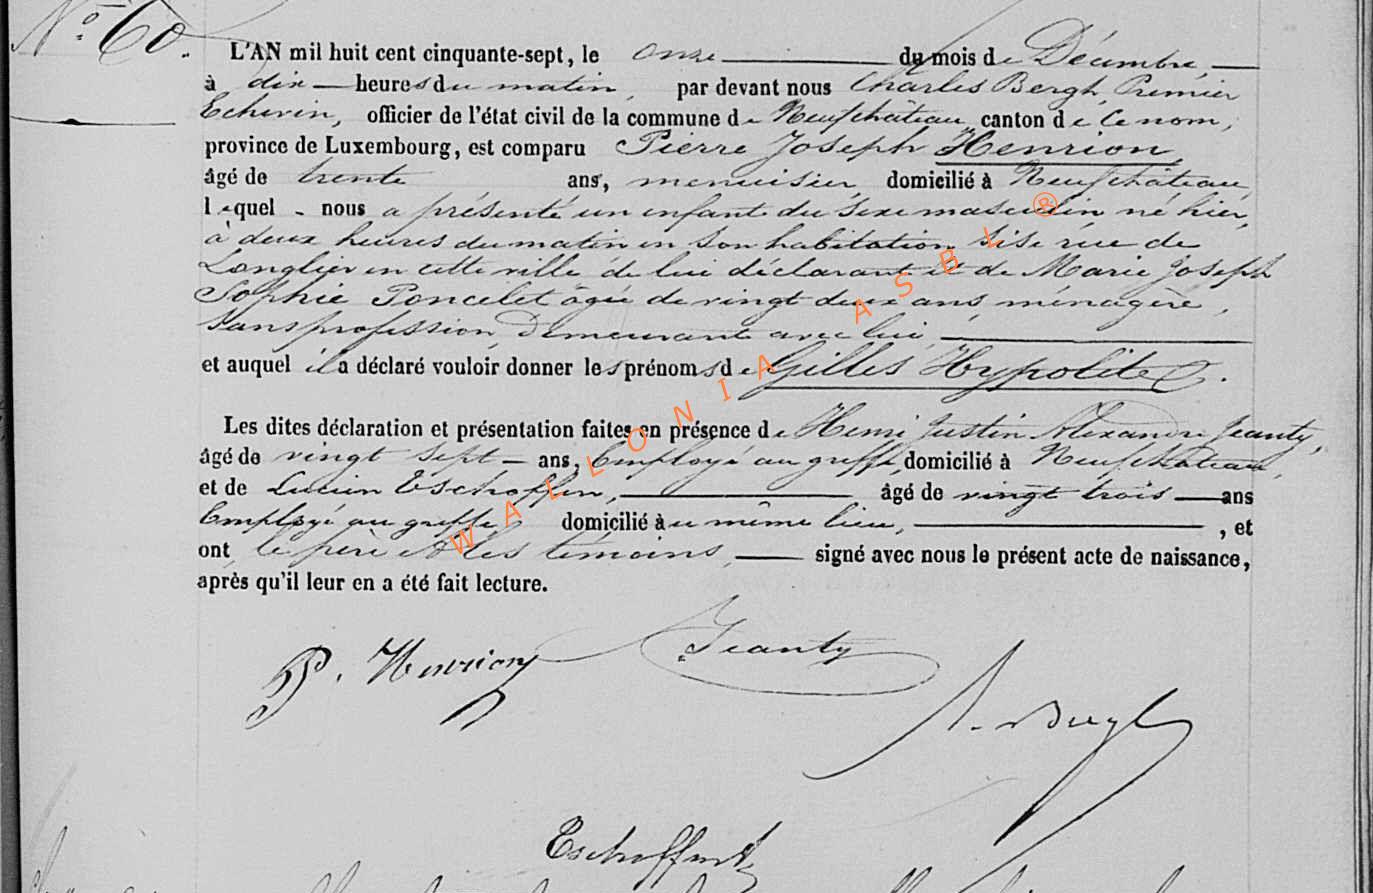 N° 60.
L'AN mil huit cent cinquante-sept, le onze du mois de Décembre,
à dix heures du matin, par devant nous Charles Bergh, Premier
Echevin, officier de l'état civil de la commune de Neufchâteau canton de ce nom,
province de Luxembourg, est comparu Pierre Joseph Henrion
âgé de trente ans, menuisier, domicilié à Neufchâteau,
lequel nous a présenté un enfant du sexe masculin né hier,
à deux heures du matin en son habitation sise rue de
Longlier en cette ville de lui déclarant et de Marie Joseph
Sophie Poncelet âgée de vingt deux ans, ménagère,
sans profession, demeurant avec lui,
et auquel il a déclaré vouloir donner les prénoms de Gilles Hypolite.
Les dites déclaration et présentation faites en présence de Henri Justin Alexandre Jeanty,
âgé de vingt sept ans, Employé au greffe domicilié à Neufchâteau,
et de Lucien Eschofflen, âgé de vingt trois ans
Employé au greffe, domicilié au même lieu, , et
ont le père et les témoins, signé avec nous le présent acte de naissance,
après qu'il leur en a été fait lecture.
P. Henrion Jeanty
WALLONIA ASBL ®